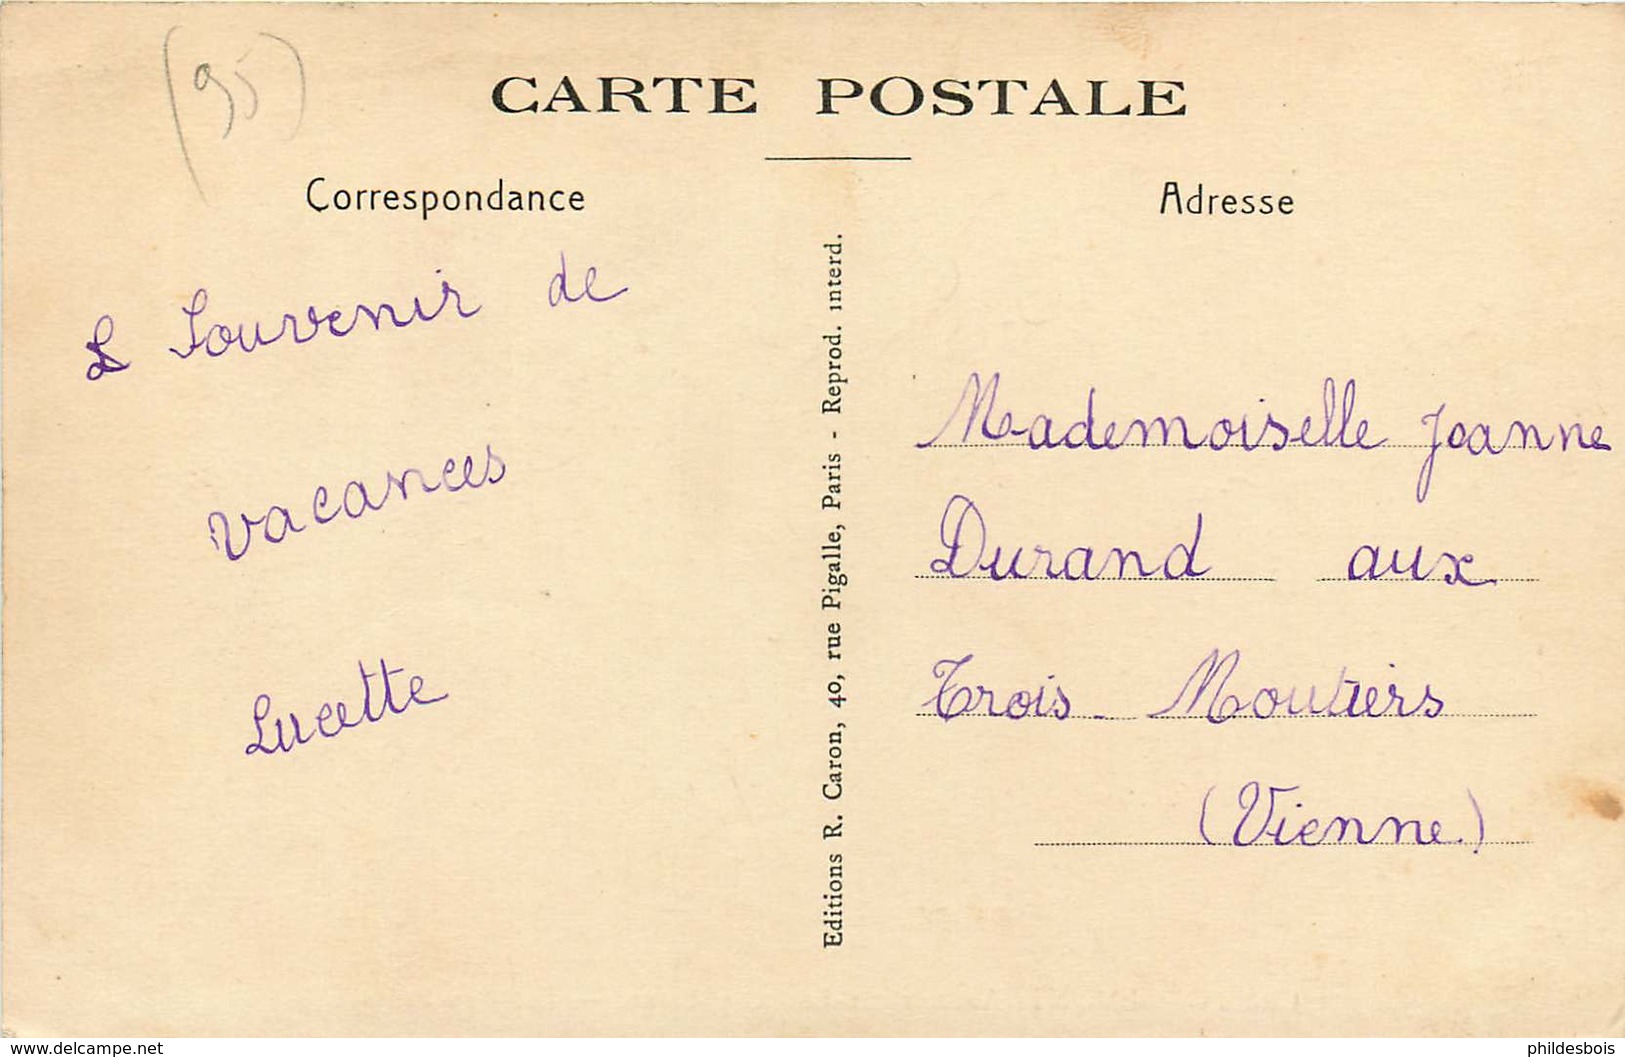 (95)
CARTE POSTALE
Correspondance
Souvenir de
vacances
Lucette
Editions R. Caron, 40, rue Pigalle, Paris - Reprod. interd.
Adresse
Mademoiselle Jeanne
Durand aux
Trois - Moutiers
(Vienne)
www.delcampe.net
phildesbois